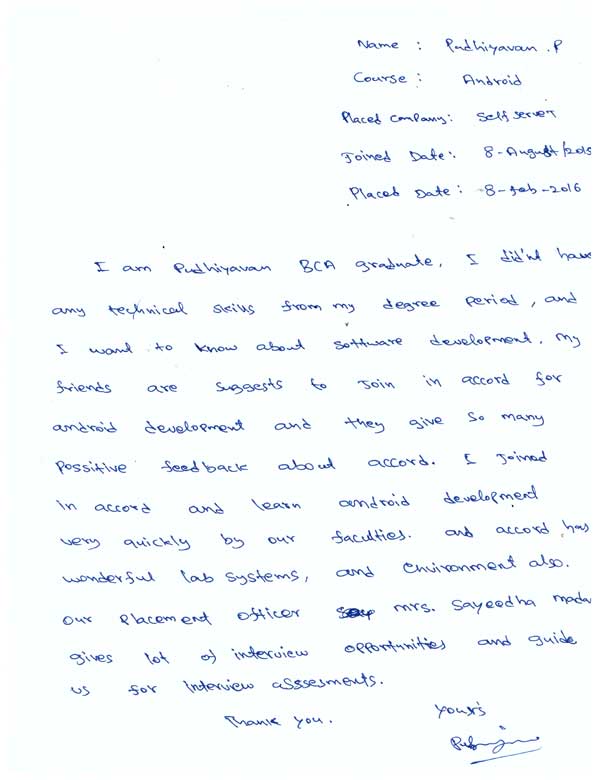 Name : Pudhiyavan .P
Course : Android
Placed Company: Self servet
Joined Date: 8-August/2015
Placed Date : 8-feb-2016
I am Pudhiyavan BCA graduate, I did'nt have
any technical skills from my degree period, and
I want to know about software development. my
friends are suggests to join in accord for
android development and they give so many
Possitive feedback about accord. I joined
in accord and learn android development
very quickly by our faculties. and accord has
wonderful lab systems, and environment also.
our placement officer mrs. Sayeedha mada
gives lot of interview opportunities and guide
us for Interview asssesments.
Thank you.
yours's